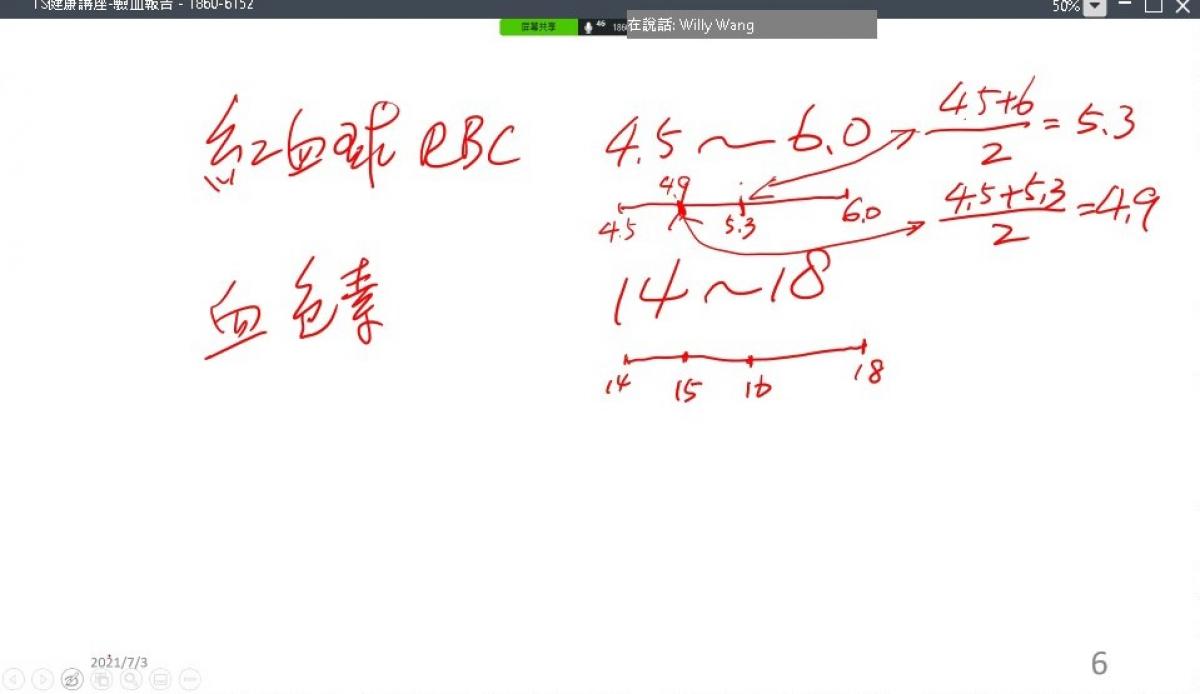 TS健康講座-驗血報告 - 1860-6152
50%
屏幕共享 46 186
在說話: Willy Wang
紅血球 RBC 4.5 ~ 6.0
4.5+6/2 = 5.3
4.9
4.5 5.3 6.0
4.5+5.3/2 = 4.9
血色素 14 ~ 18
14 15 16 18
2021/7/3
6